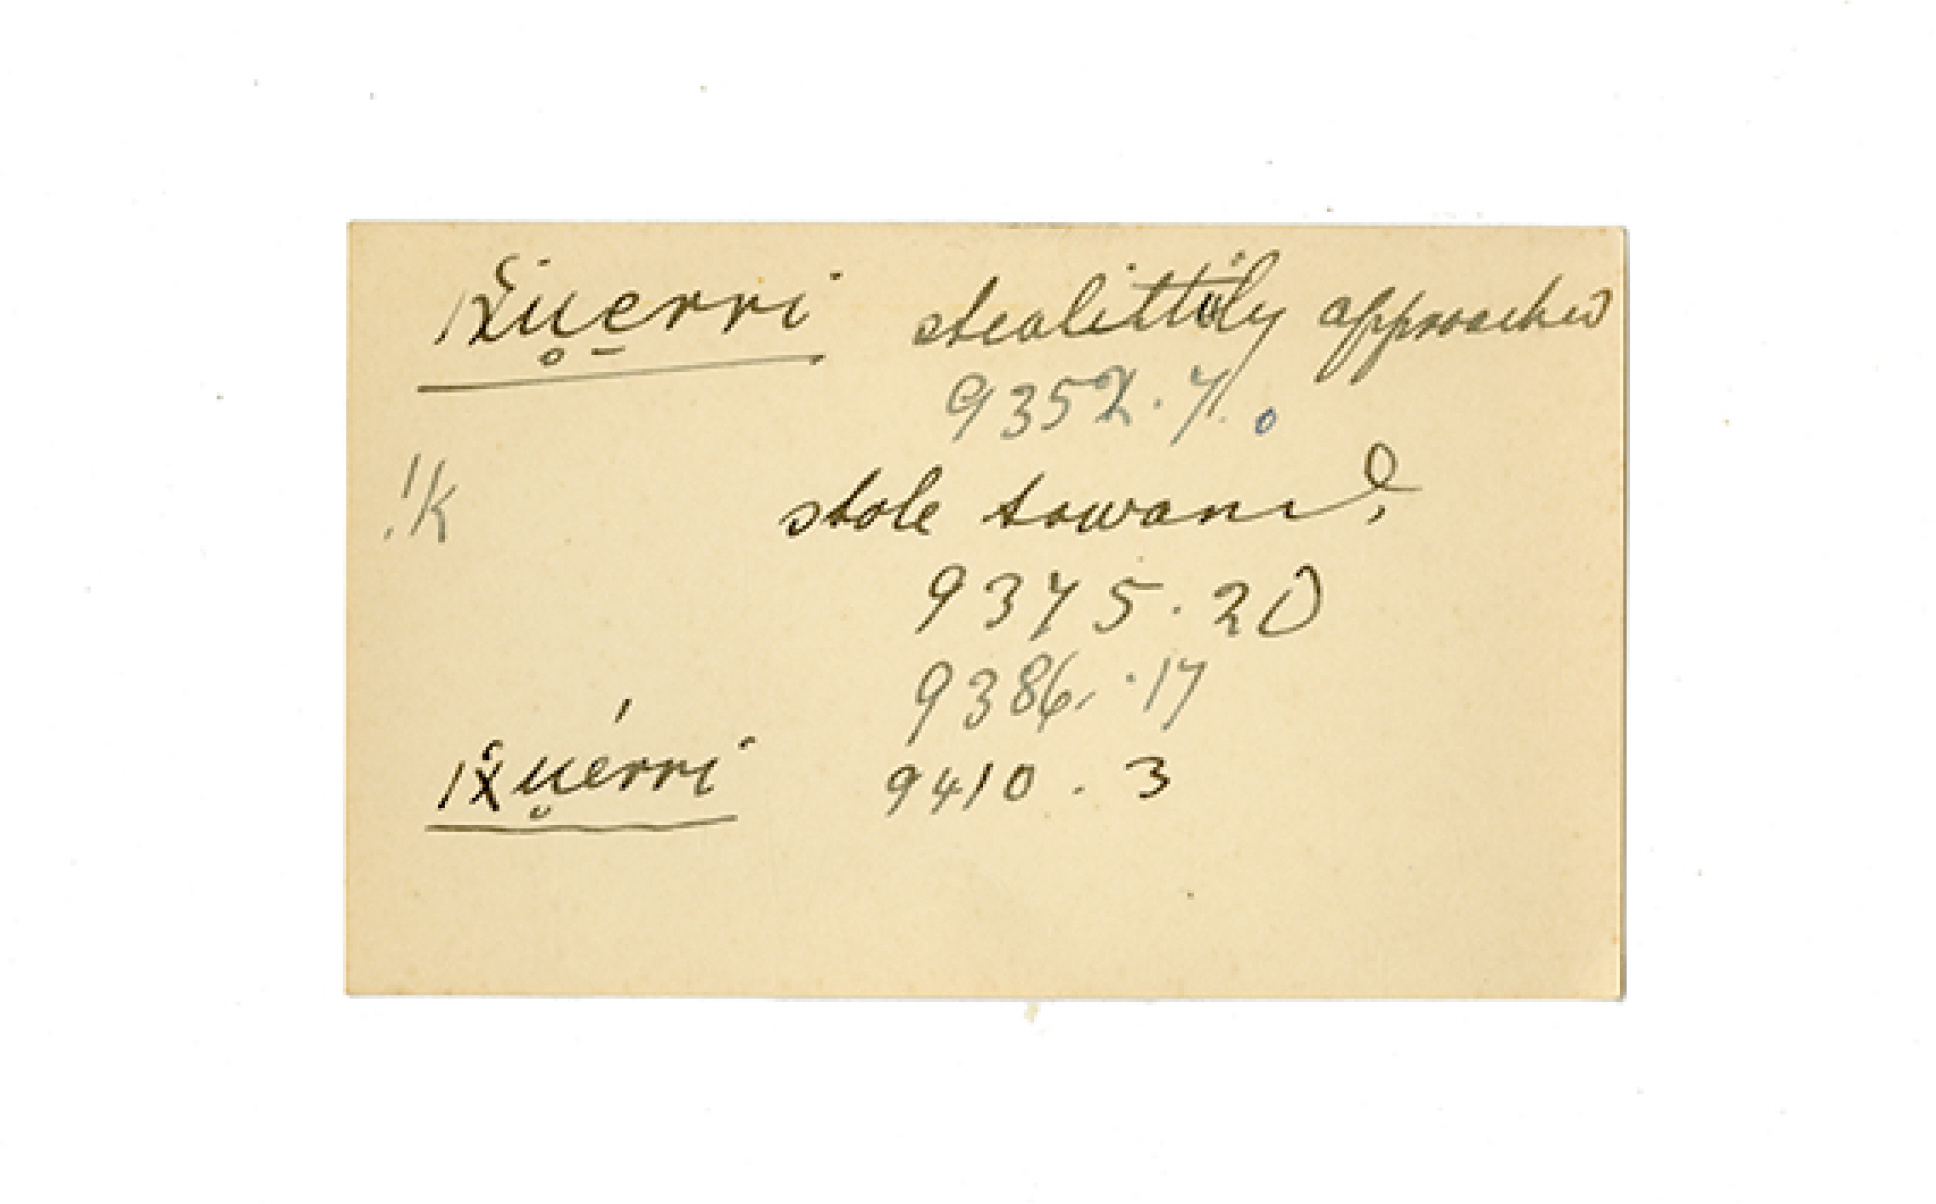 |x̆u̥e̱rri stealittily approached
9352.7.
!k stole toward,
9375.20
9386.17
|x̆u̮érri 9410.3